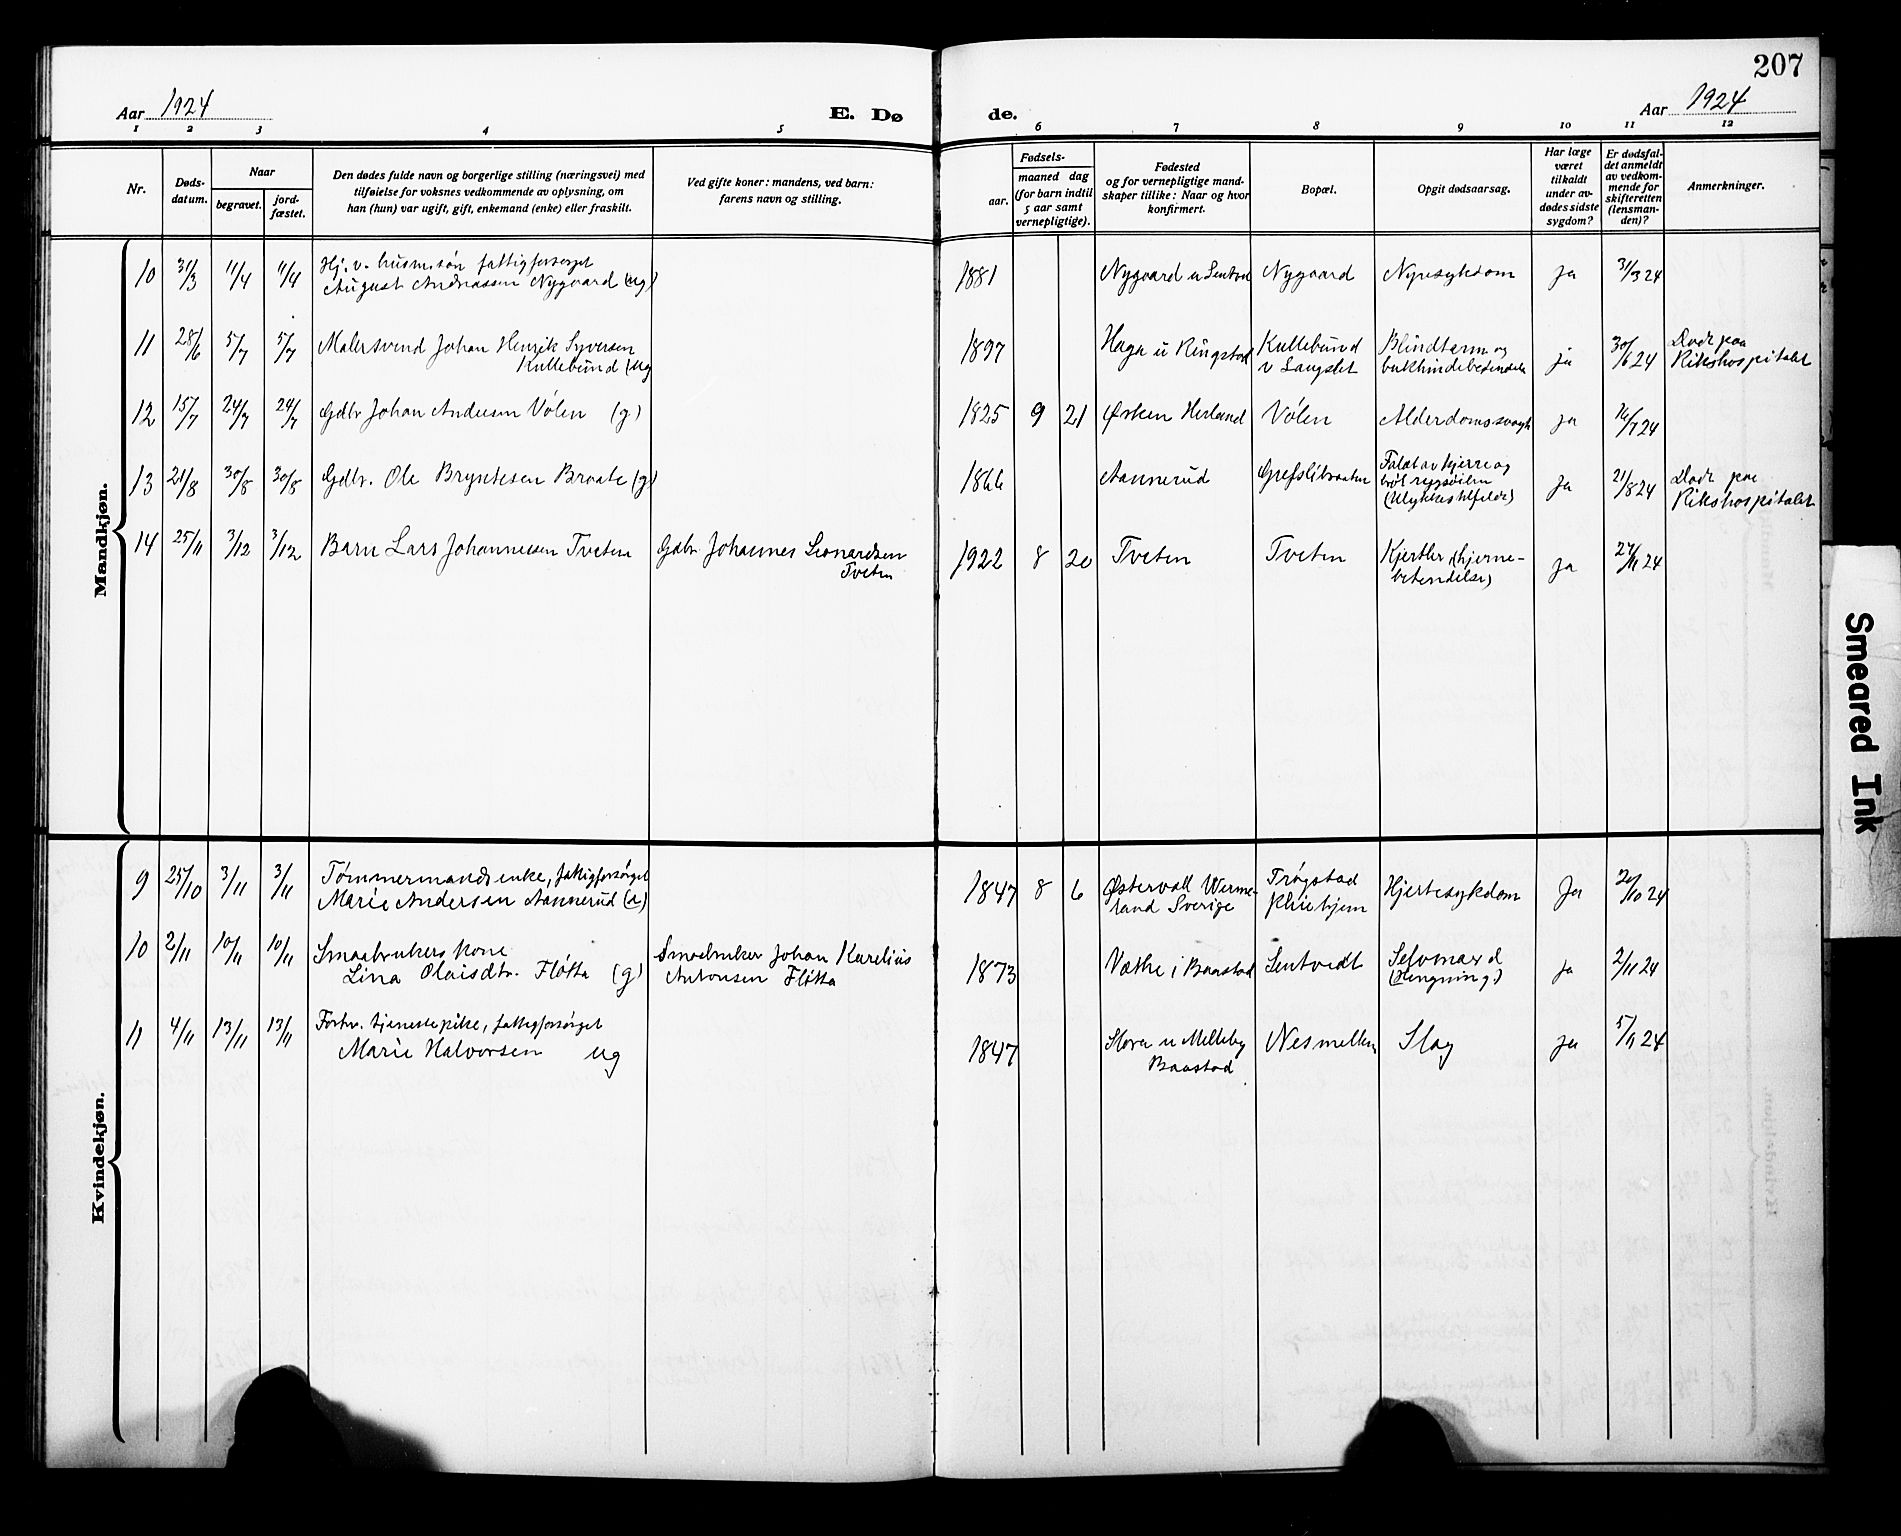 207
Aar 1924
E. Dø
de.
Aar 1924
1 2 3 4 5 6 7 8 9 10 11 12
Nr.
Døds-
datum.
Naar
begravet.
jord-
fæstet.
Den dødes fulde navn og borgerlige stilling (næringsvei) med
tilføielse for voksnes vedkommende av oplysning, om
han (hun) var ugift, gift, enkemand (enke) eller fraskilt.
Ved gifte koner: mandens, ved barn:
farens navn og stilling.
Fødsels-
aar.
maaned dag
(for barn indtil
5 aar samt
vernepligtige).
Fødested
og for vernepligtige mand-
skaper tillike: Naar og hvor
konfirmert.
Bopæl.
Opgit dødsaarsag.
Har læge
været
tilkaldt
under av-
dødes sidste
sygdom?
Er dødsfal-
det anmeldt
av vedkom-
mende for
skifteretten
(lensman-
den)?
Anmerkninger.
Mandkjøn.
10 31/3 11/4 11/4 Hj. v. husm.søn fattigforsørget
August Andreassen Nygaard (ug)
1881 Nygaard u Sentved Nygaard Nyresykdom ja 31/3 24
11 28/6 5/7 5/7 Malersvend Johan Henrik Syversen
Kullebund (ug
1897 Haga u Ringstad Kullebund
v Langslet
Blindtarm og
bukhindebetendelse
ja 30/6 24 Døde paa
Rikshospitalet
12 15/7 24/7 24/7 Gdbr Johan Andersen Vølen (g)
1825 9 21 Ørken Herland Vølen Alderdomssvagh ja 16/7 24
13 21/8 30/8 30/8 Gdbr. Ole Bryntesen Braate (g)
1866 Aannerud Grefslibraaten Faldt av kjerre og
brøt rygsøilen
(Ulykkestilfelde)
ja 21/8 24 Døde paa
Rikshospitalet
14 25/11 3/12 3/12 Barn Lars Johannessen Tveten Gdbr Johannes Leonardsen
Tveten
1922 8 20 Tveten Tveten Kjertler (hjerne-
betendelse)
ja 27/11 24
Kvindekjøn.
9 25/10 3/11 3/11 Tømmermands enke, fattigforsørget
Marie Andersen Aannerud (e)
1847 8 6 Østervall Werme-
land Sverige
Trøgstad
pleiehjem
Hjertesykdom Ja 26/10 24
10 2/11 10/11 10/11 Smaabrukers kone
Lina Olaisdtr. Fløtta (g)
Smaabruker Johan Karelius
Antonsen Fløtta
1873 Væthe i Baastad Sentvedt Selvmord
(Hengning)
ja 2/11 24
11 4/11 13/11 13/11 Forhv. tjenestepike, fattigforsørget
Marie Halvorsen ug
1847 Stora u Melleby
Baastad
Nesmellem Slag ja 5/11 24
Smeared Ink